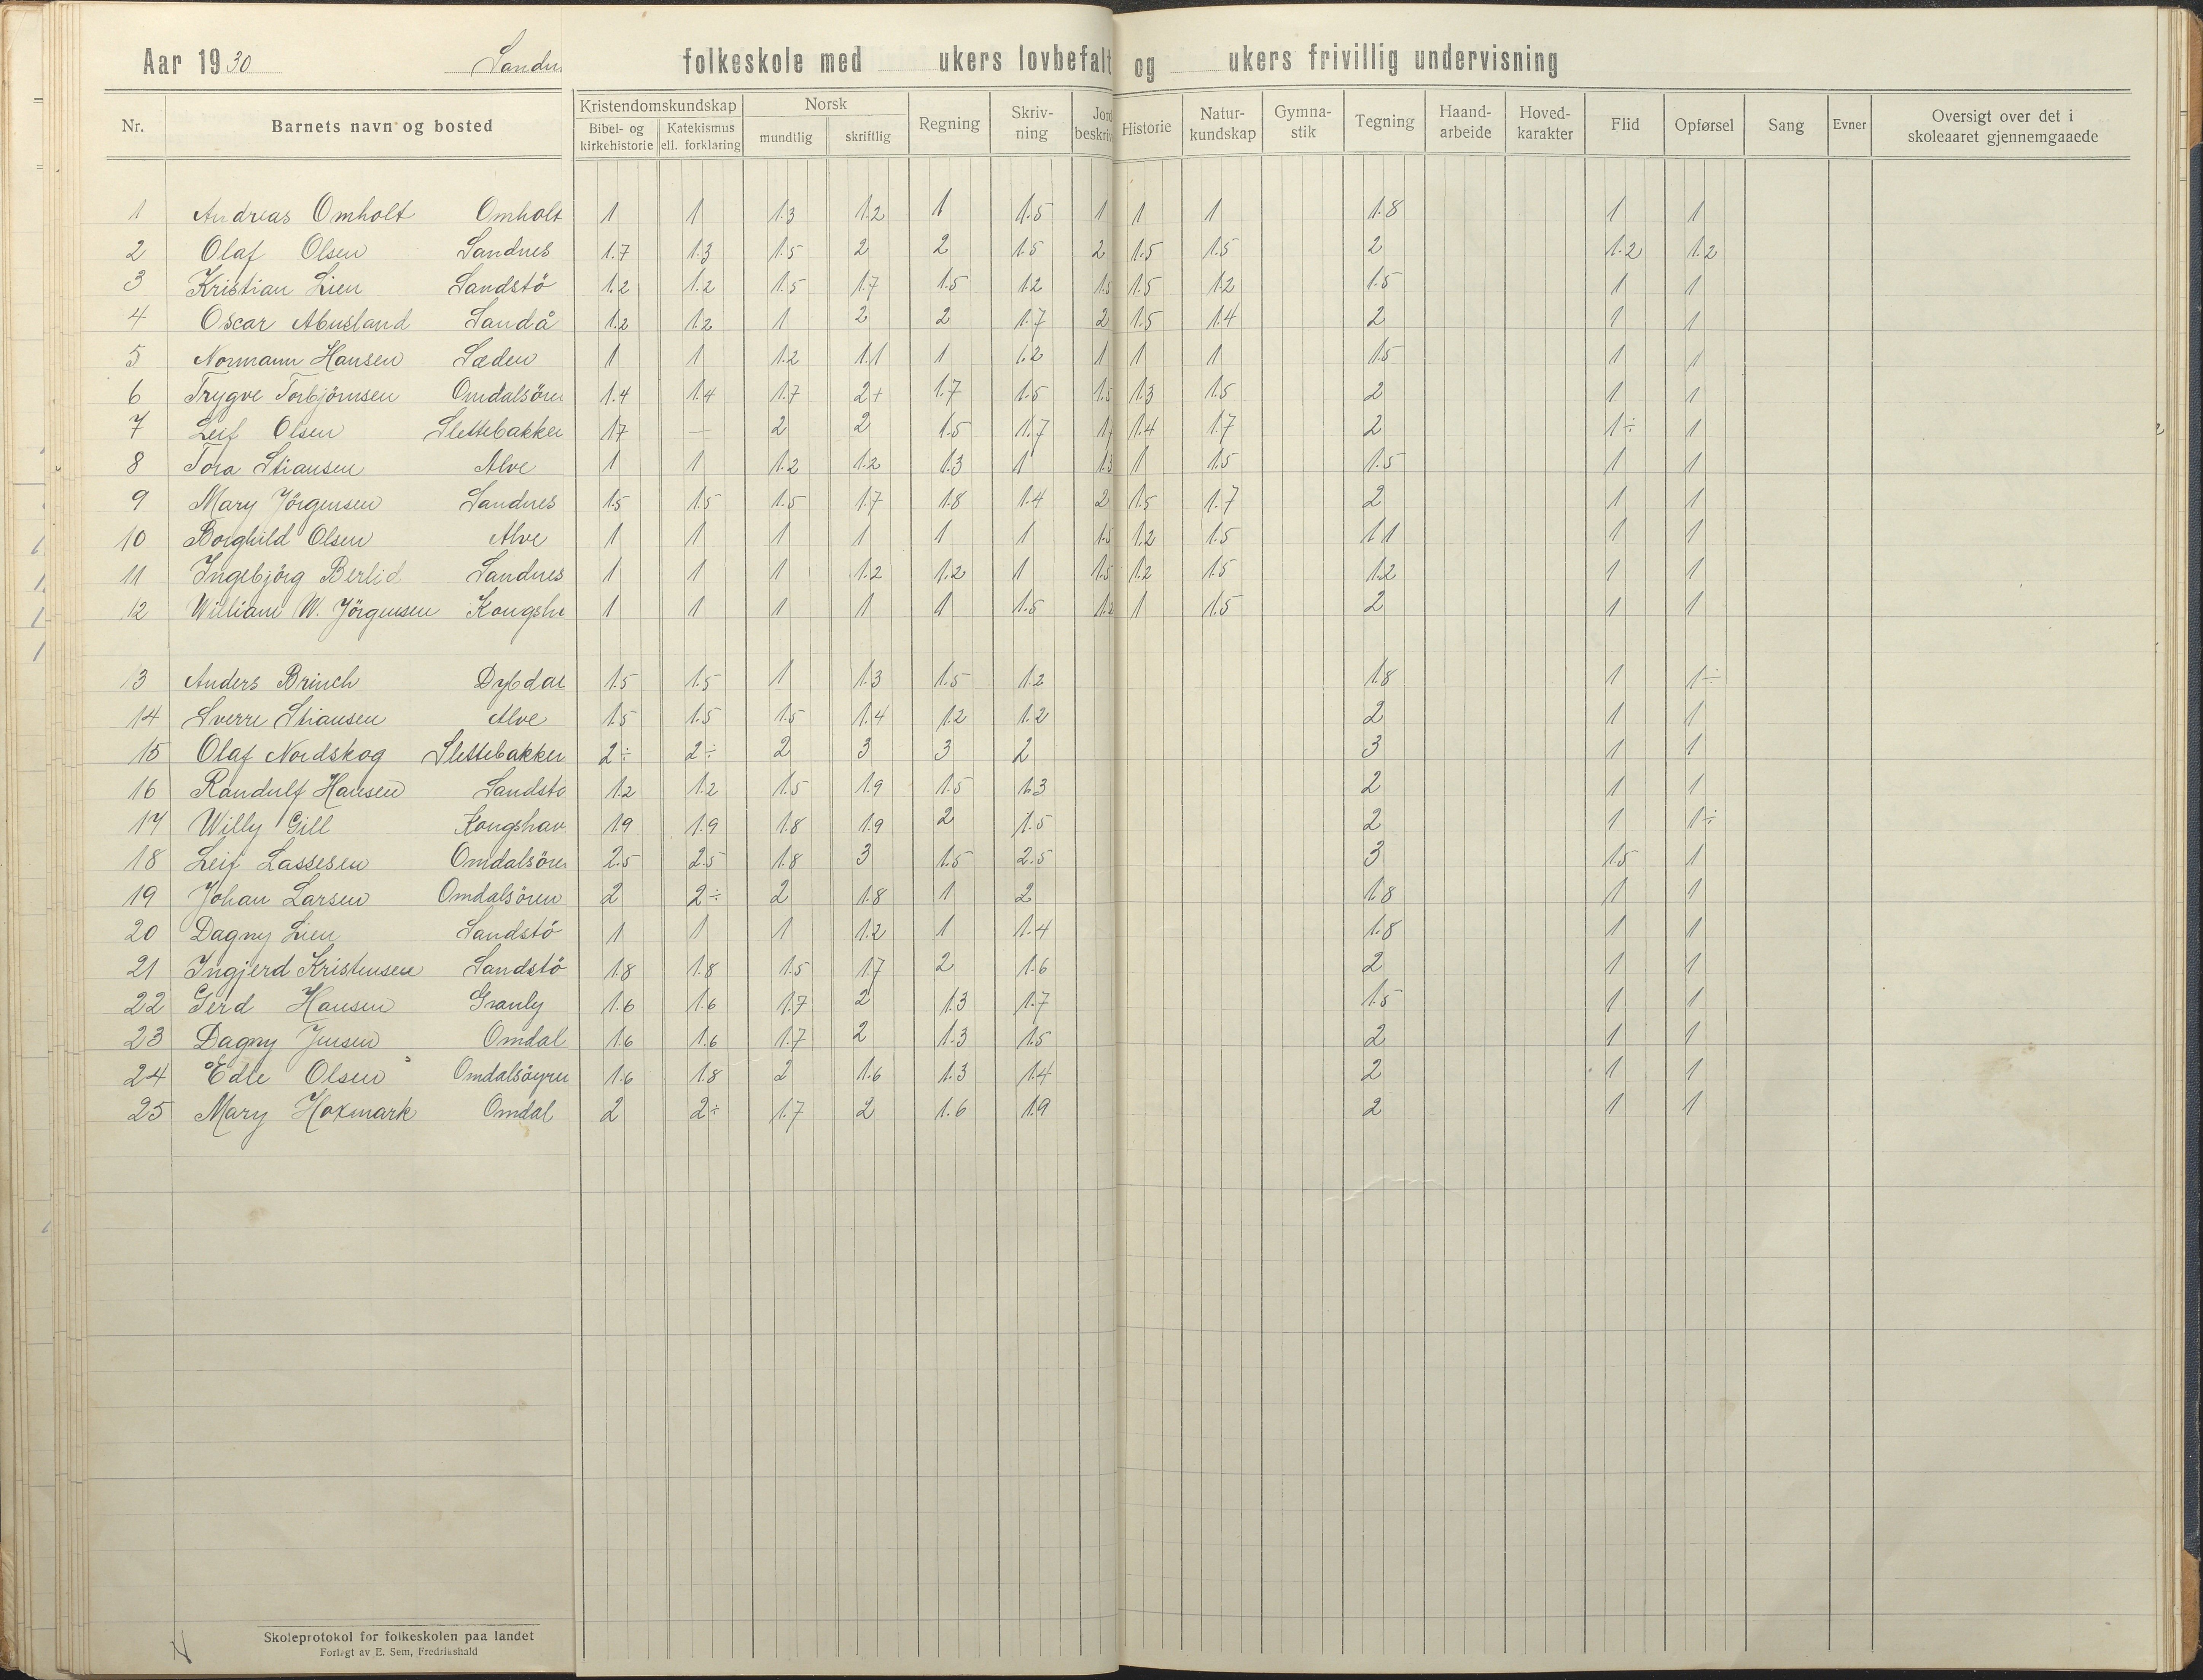 Aar 1930 Sandn folkeskole med ukers lovbefalt og ukers frivillig undervisning
Nr. Barnets navn og bosted Kristendomskundskap Bibel- og kirkehistorie Katekismus ell. forklaring Norsk mundtlig skriftlig Regning Skriv-ning Jord beskriv Historie Natur-kundskap Gymna-stik Tegning Haand-arbeide Hoved-karakter Flid Opførsel Sang Evner Oversigt over det i skoleaaret gjennemgaaede
1 Andreas Omholt Omholt 1 1 1.3 1.2 1 1.5 1 1 1 1.8 1 1
2 Olaf Olsen Sandnes 1.7 1.3 1.5 2 2 1.5 2 1.5 1.5 2 1.2 1.2
3 Kristian Lien Sandstö 1.2 1.2 1.5 1.7 1.5 1.2 1.5 1.5 1.2 1.5 1 1
4 Oscar Abusland Sandå 1.2 1.2 1 2 2 1.7 2 1.5 1.4 2 1 1
5 Normann Hansen Sæden 1 1 1.2 1.1 1 1.2 1 1 1 1.5 1 1
6 Trygve Torbjörnsen Omdalsören 1.4 1.4 1.7 2+ 1.7 1.5 1.5 1.3 1.5 2 1 1
7 Leif Olsen Slettebakken 1.7 — 2 2 1.5 1.7 1.7 1.4 1.7 2 1÷ 1
8 Tora Stiansen Alve 1 1 1.2 1.2 1.3 1 1.3 1 1.5 1.5 1 1
9 Mary Jörgensen Sandnes 1.5 1.5 1.5 1.7 1.8 1.4 2 1.5 1.7 2 1 1
10 Borghild Olsen Alve 1 1 1 1 1 1 1.5 1.2 1.5 1.1 1 1
11 Ingebjörg Berlid Sandnes 1 1 1 1.2 1.2 1 1.5 1.2 1.5 1.2 1 1
12 William W. Jörgensen Kongsha 1 1 1 1 1 1.5 1.2 1 1.5 2 1 1
13 Anders Brinch Dybdal 1.5 1.5 1 1.3 1.5 1.2 1.8 1 1÷
14 Sverre Stiansen Alve 1.5 1.5 1.5 1.4 1.2 1.2 2 1 1
15 Olaf Nordskog Slettebakken 2÷ 2÷ 2 3 3 2 3 1 1
16 Randulf Hansen Sandstö 1.2 1.2 1.5 1.9 1.5 1.3 2 1 1
17 Willy Gill Kongshav 1.9 1.9 1.8 1.9 2 1.5 2 1 1÷
18 Leif Lassesen Omdalsören 2.5 2.5 1.8 3 1.5 2.5 3 1.5 1
19 Johan Larsen Omdalsören 2 2÷ 2 1.8 1 2 1.8 1 1
20 Dagny Lien Sandstö 1 1 1 1.2 1 1.4 1.8 1 1
21 Ingjerd Kristensen Sandstö 1.8 1.8 1.5 1.7 2 1.6 2 1 1
22 Gerd Hansen Granly 1.6 1.6 1.7 2 1.3 1.7 1.5 1 1
23 Dagny Jensen Omdal 1.6 1.6 1.7 2 1.3 1.5 2 1 1
24 Edle Olsen Omdalsöyren 1.6 1.8 2 1.6 1.3 1.4 2 1 1
25 Mary Hoxmark Omdal 2 2÷ 1.7 2 1.6 1.9 2 1 1
Skoleprotokol for folkeskolen paa landet
Forlagt av E. Sem, Fredrikshald